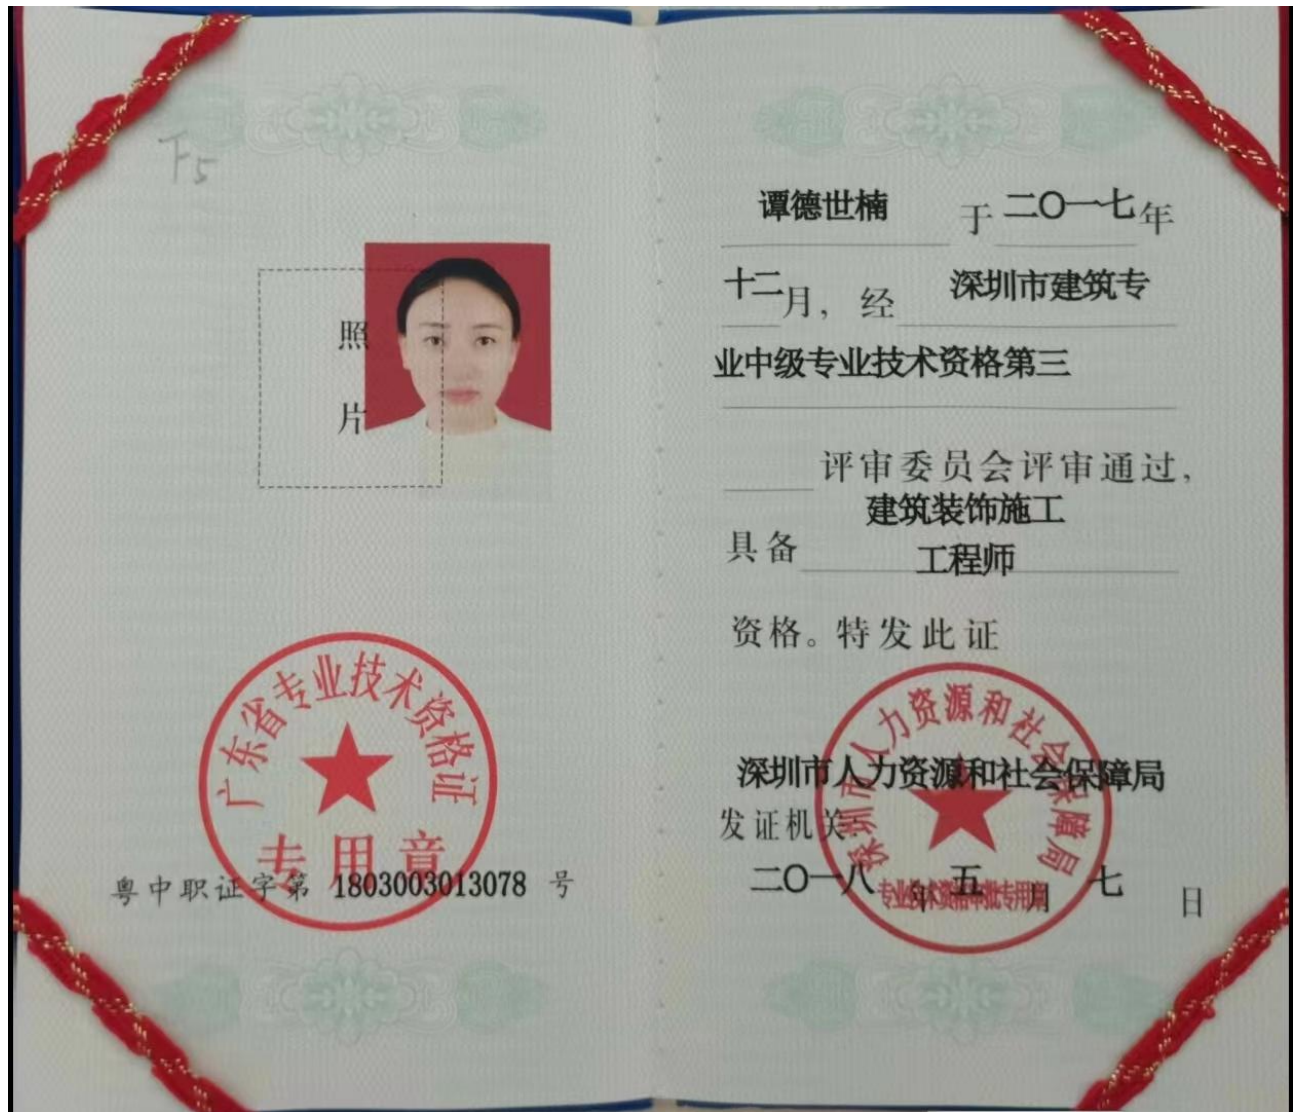 下5
照
片
广东省专业技术资格证
专用章
粤中职证字第 1803003013078 号
谭德世楠 于 二〇一七 年
十二 月，经 深圳市建筑专
业中级专业技术资格第三
评审委员会评审通过，
建筑装饰施工
具备 工程师
资格。特发此证
深圳市人力资源和社会保障局
深圳市人力资源和社会保障局
发证机关:
二〇一八 年 五 月 七 日